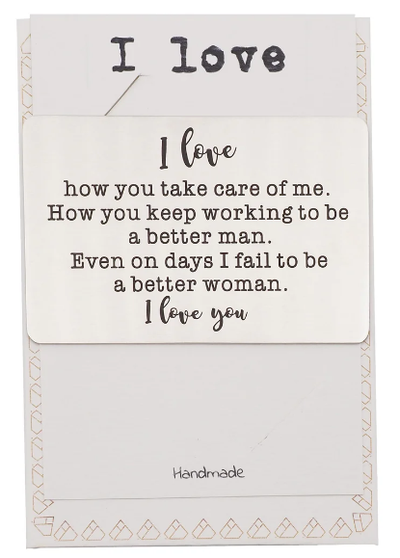 I love
I love
how you take care of me.
How you keep working to be
a better man.
Even on days I fail to be
a better woman.
I love you
Handmade